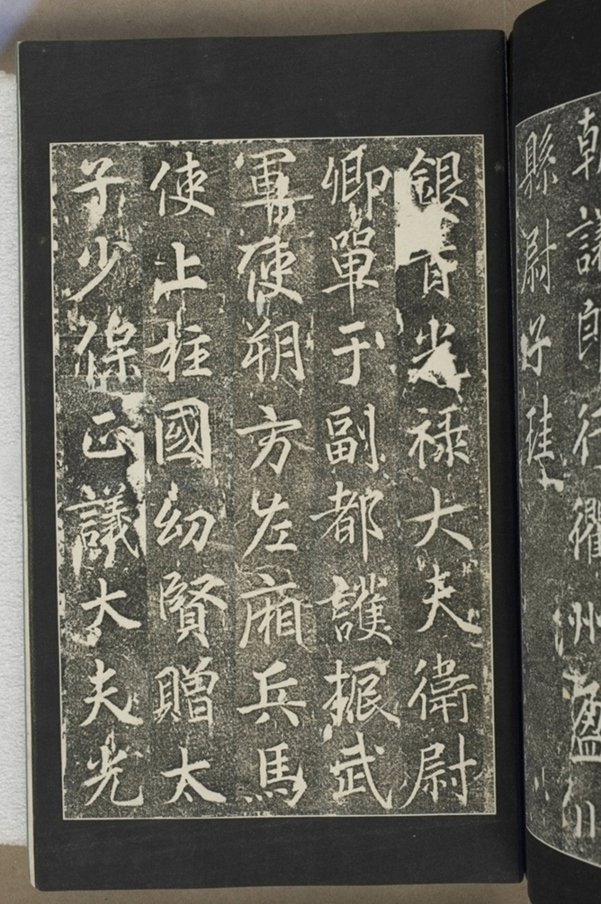 朝議郎行衢州盈川
縣尉
銀青光祿大夫衛尉
卿單于副都護振武
軍使朔方左廂兵馬
使上柱國幼賢贈太
子少保正議大夫光